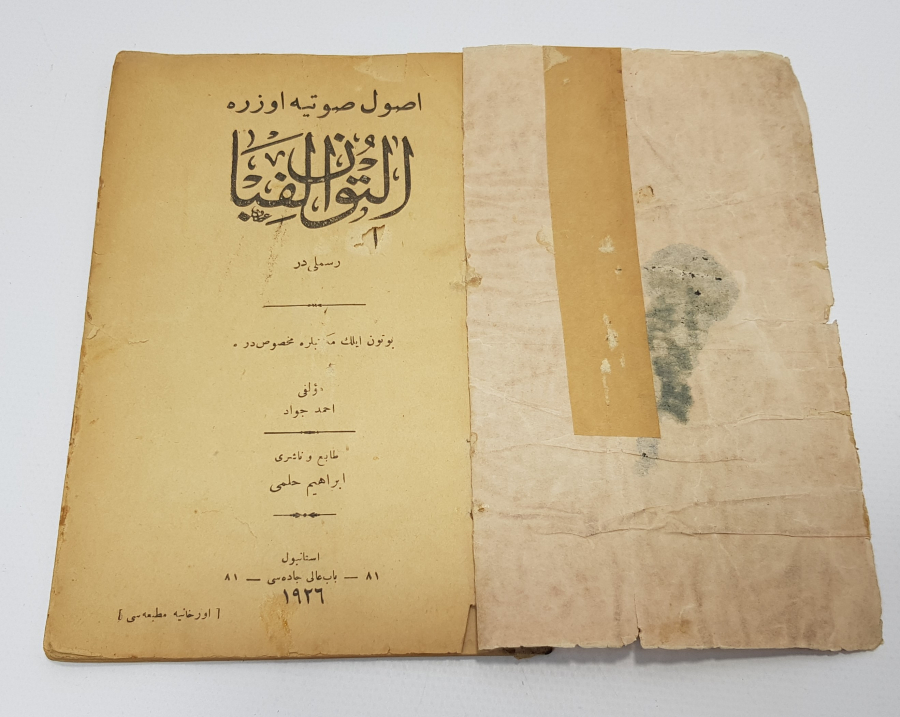 اصول صوتیه اوزره
التون الفبا
رسملی در
بوتون ایلك مخصوص در .
ؤلفی
احمد جواد
طابع و ناشری
ابراهیم حلمی
استانبول
٨١ — باب عالی جاده سی — ٨١
١٩٢٦
[ اورخانیه مطبعه سی ]